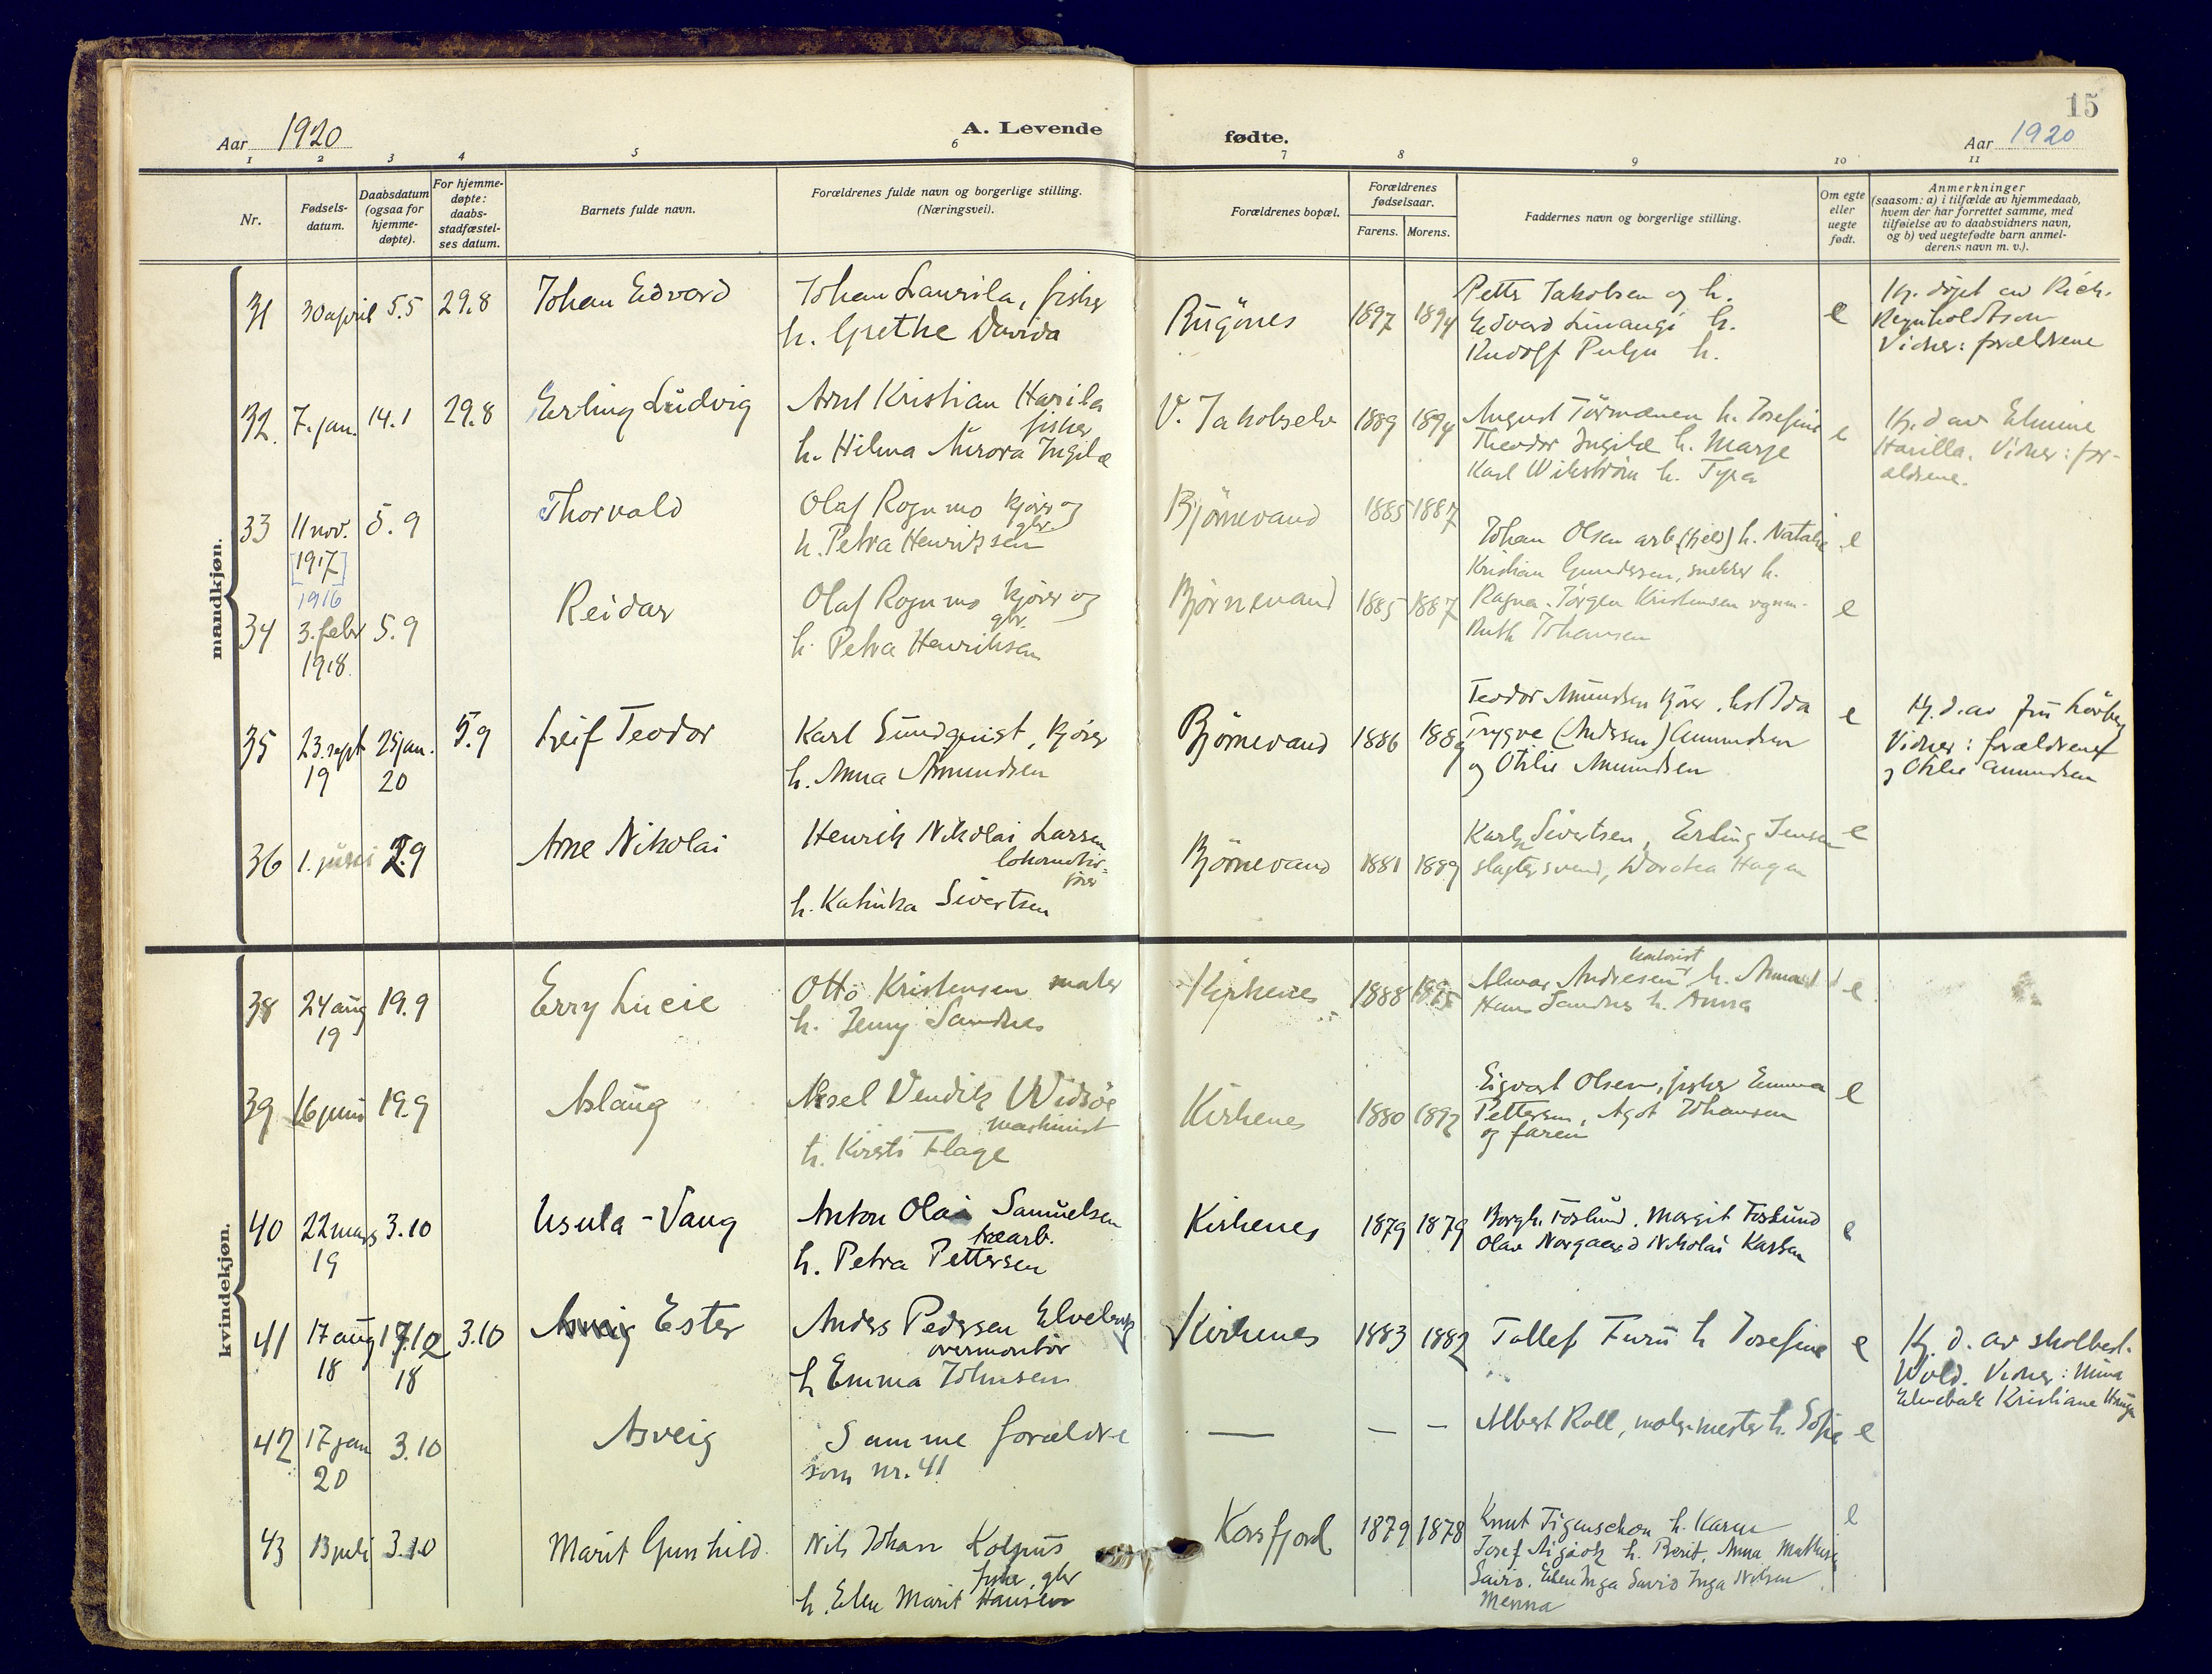 15
Aar 1920
A. Levende
fødte.
Aar 1920
1 2 3 4 5 6 7 8 9 10 11
Nr.
Fødsels-
datum.
Daabsdatum
(ogsaa for
hjemme-
døpte).
For hjemme-
døpte:
daabs-
stadfæstel-
ses datum.
Barnets fulde navn.
Forældrenes fulde navn og borgerlige stilling.
(Næringsvei).
Forældrenes bopæl.
Forældrenes
fødselsaar.
Farens. Morens.
Faddernes navn og borgerlige stilling.
Om egte
eller
uegte
født.
Anmerkninger
(saasom: a) i tilfælde av hjemmedaab,
hvem der har forrettet samme, med
tilføielse av to daabsvidners navn,
og b) ved uegtefødte barn anmel-
derens navn m. v.).
mandkjøn.
31 30 april 5.5 29.8 Johan Edvard
Johan Laurila, fisker
h. Grethe Davida
Bugönes 1897 1894
Petter Jakobsen og h.
Edvard h.
Rudolf h.
e
Hj. döpt av Rich.
Reynholdtsen
Vidner: forældrene
32. 7. jan. 14.1 29.8 Erling Ludvig
Arnt Kristian Harila
fisker
h. Hilma Aurora Ingilæ
V. Jakobselv 1889 1894
August Törmænen h. Josefine
Theodor Ingilæ h. Marje
Karl Wikström h. Tyra
e
Hj. d av Elmine
Harilla. Vidner: for-
ældrene.
33 11 nov. 5.9 Thorvald
[1917]
1916
Olaf Rognmo kjører og
gbr.
h. Petra Henriksen
Bjørnevand 1885 1887
Johan Olsen arb. (fjeld) h. Natalie
Kristian Gundersen, snekker h.
e
34 3. febr 5.9 Reidar
1918.
Olaf Rogn mo kjører og
gbr.
h. Petra Henriksen
Bjørnevand 1885 1887
Ragna. Jörgen Kristensen
Ruth Johansen
e
35 23. sept 25 jan. 5.9 Leif Teodor
19 20
Karl Sundquist, kjører
h. Anna Amundsen
Bjørnevand 1886 1889
Teodor Amundsen kjører. Ida
Trygve (Andersen) Amundsen
og Otilie Amundsen
e
Hj. d. av fru
Vidner: forældrene
og Otilie Amundsen
36 1. juni 2.9 Arne Nikolai
Henrik Nikolai Larsen
lokomotiv-
fører
h. Katinka Sivertsen
Bjørnevand 1881 1889
Karl Sivertsen, Erling Jensen
slagtersvend, Dorothea Hagen
e
kvindekjøn.
38 24 aug 19.9 Erry Lucie
19
Otto Kristensen maler
h. Jenny Sandnes
Kirkenes 1888 1895
Almar Andresen h. Anna
Hans Sandnes h. Anna
e
39 16 juni 19.9 Aslaug
Aksel Vendik Widsöe
maskinist
h. Kirsti Flage
Kirkenes 1880 1892
Sigvart Olsen, fisker Emma
Pettersen, Agot Johansen
og faren
e
40 22 mars 3.10 Usula-Vaug
19
Anton Olai Samuelsen
træarb.
h. Petra Pettersen
Kirkenes 1879 1879
Borgh. Foslund. Margit Foslund
Olav Norgaard Nikolai Karlsen
e
41 17 aug 17.12 3.10 Asveig Ester
18 18
Anders Pedersen Elvebak
overmontør
h Emma Johnsen
Kirkenes 1883 1882
Tollef Furu h Josefine
e
Hj. d. av skolbest.
Wold. Vidner: Mina
Elvebak Kristiane
42 17 jan 3.10 Asveig
20
Samme forældre
som nr. 41
— — —
Albert Roll, malermester h. Sofie
e
43 13 juli 3.10 Marit Gunhild.
Nils Johan Kolpus
fisker, gbr
h. Elen Marit Hansen
Korsfjord 1879 1878
Knut Tigenschou h. Karen
Josef h. Berit. Anna Mathisen
Savio. Elen Inga Savio Inga Nilsen
Menna
e